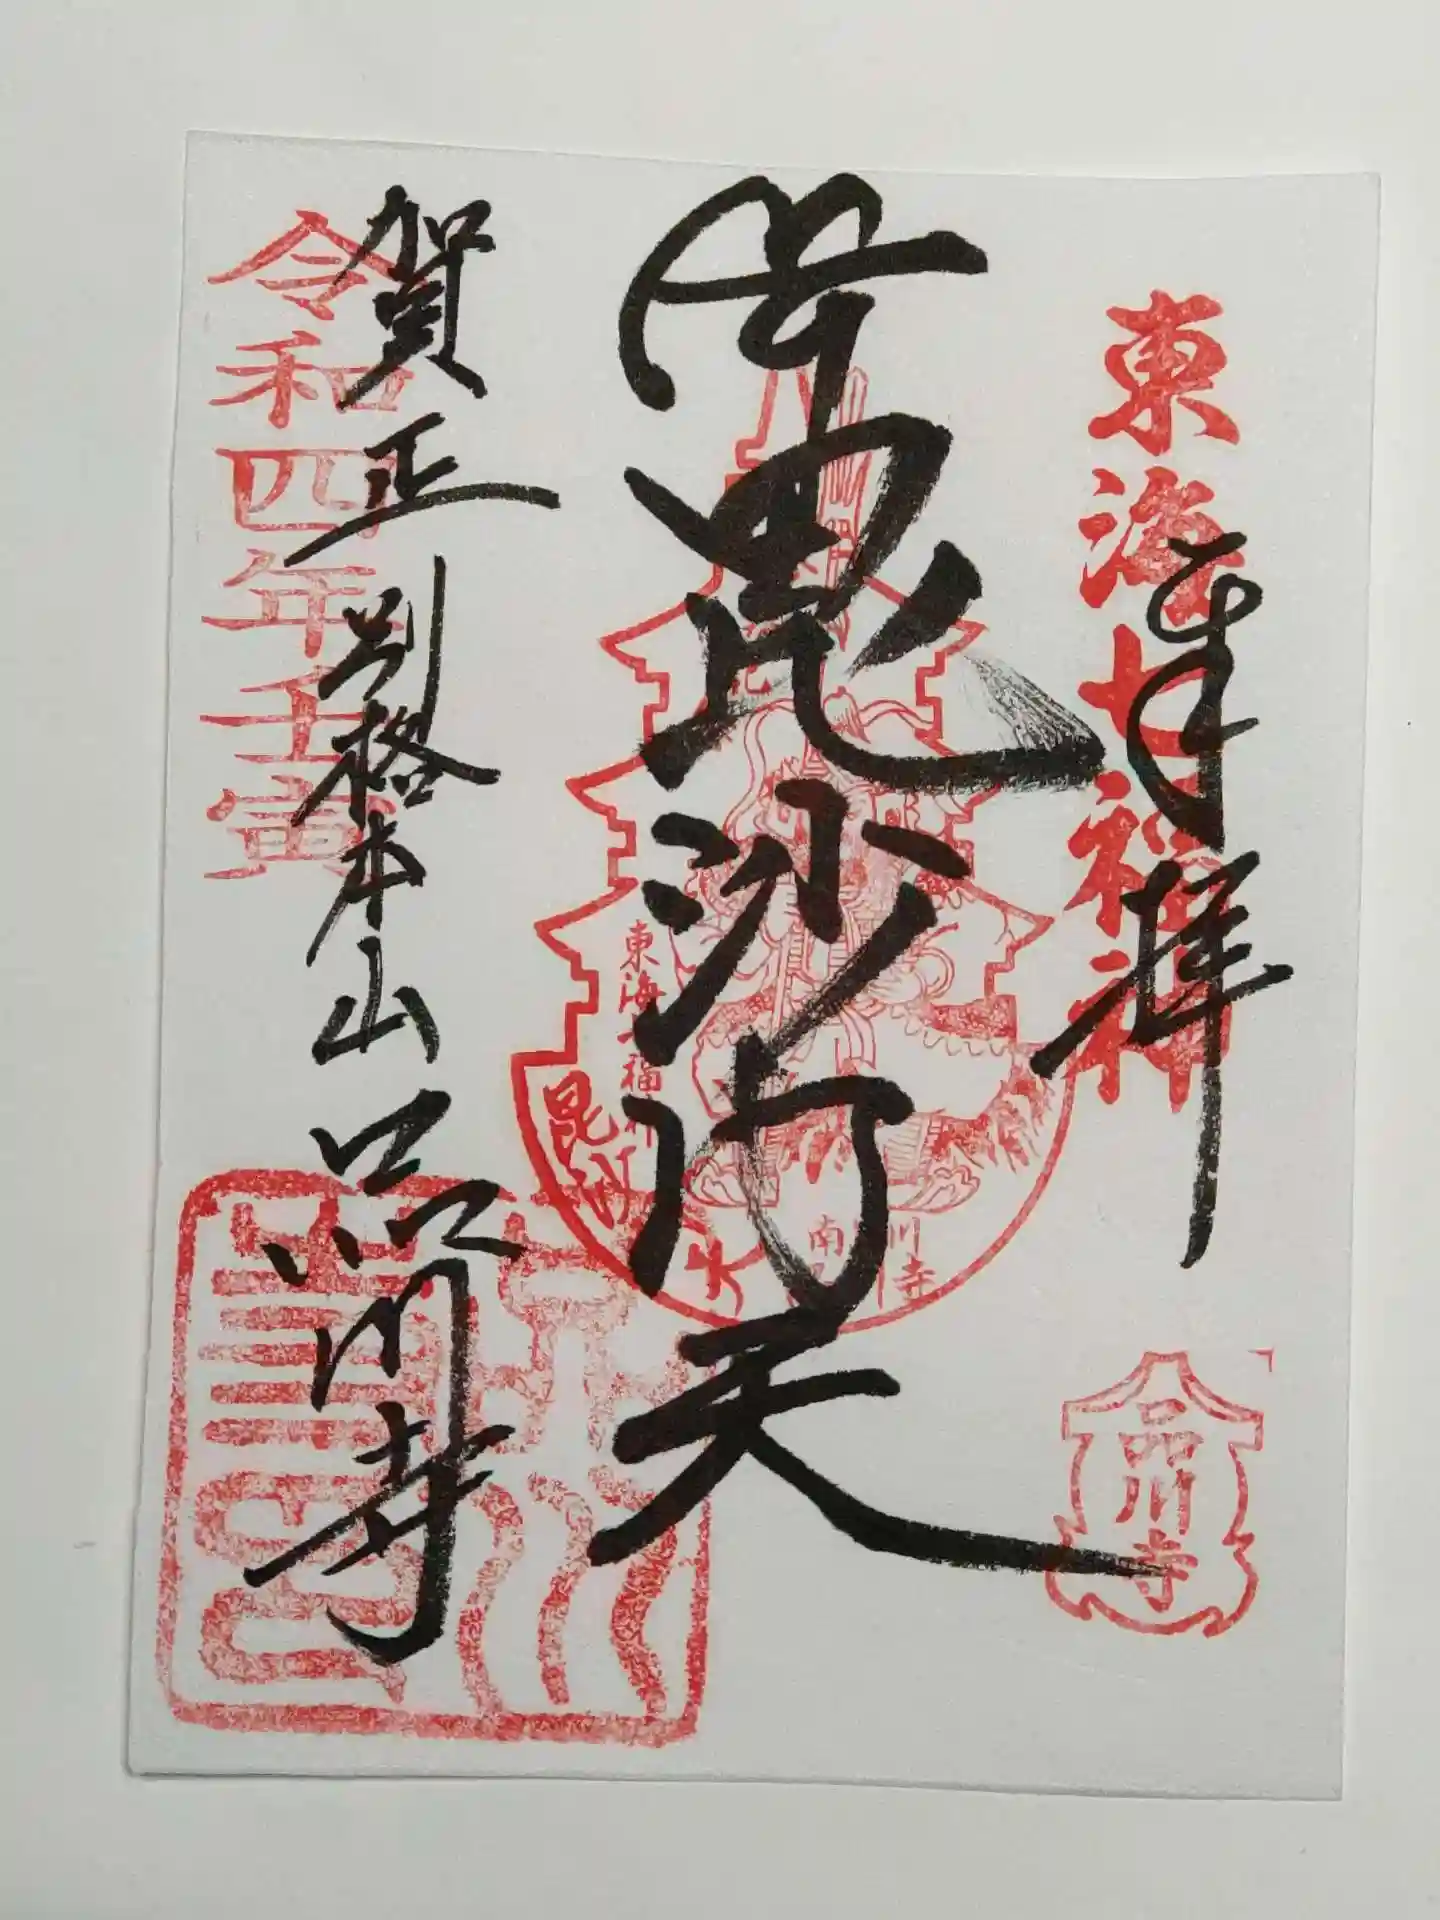 東海七福神
奉拝
品川寺
毘沙门天
東海七福神
毘沙
南 川寺
賀正 別格本山 品川寺
令和四年壬寅